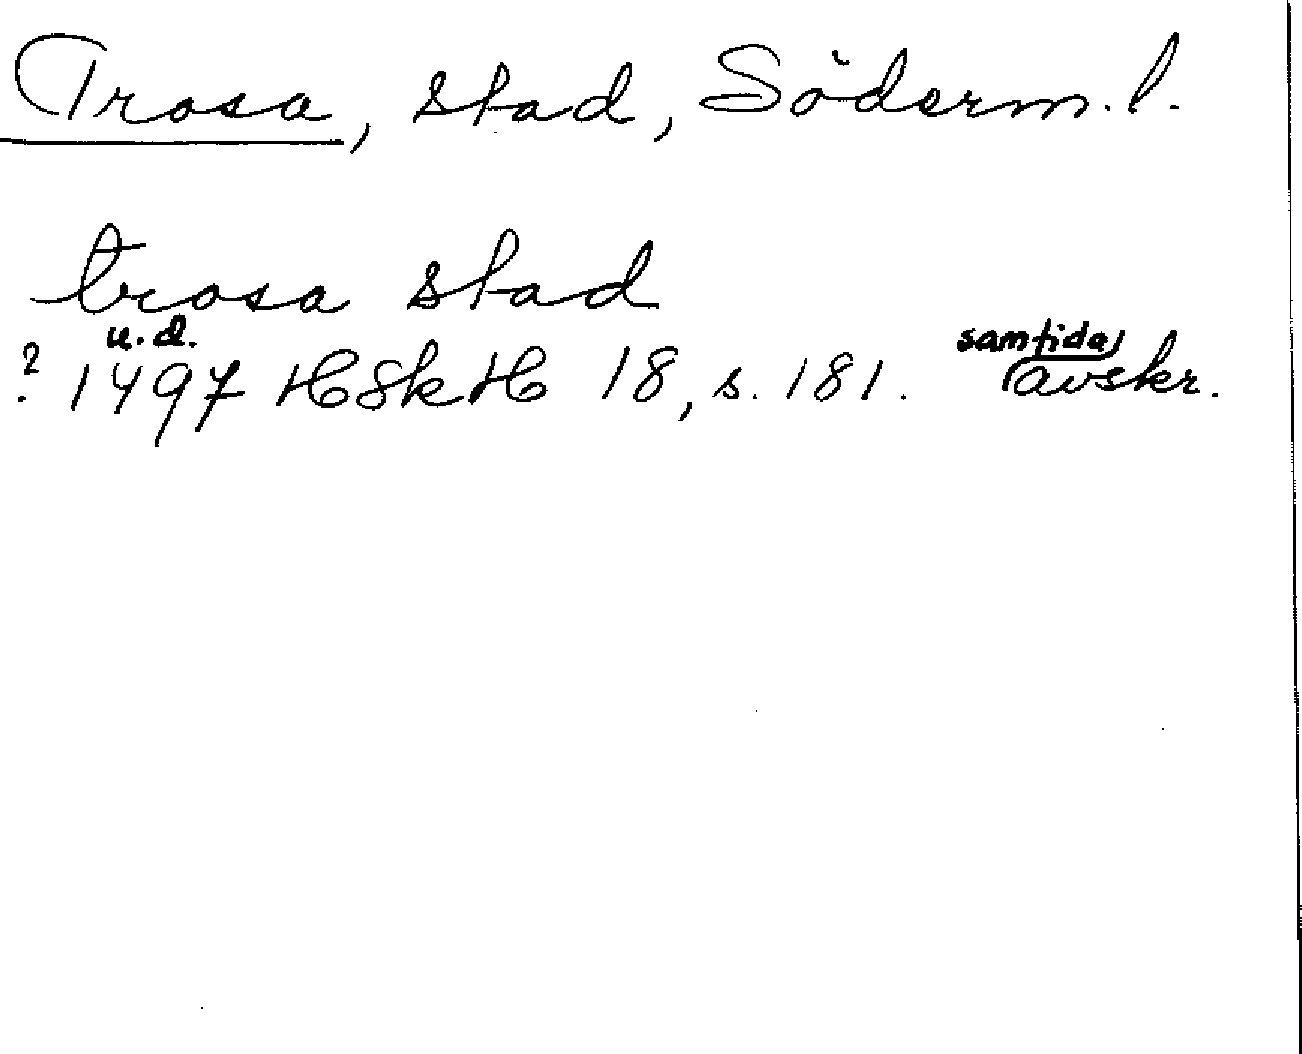 Trosa, stad, Söderm. l.
trosa stad
u. d.
? 1497 HSkH 18, s. 181. samtida avskr.